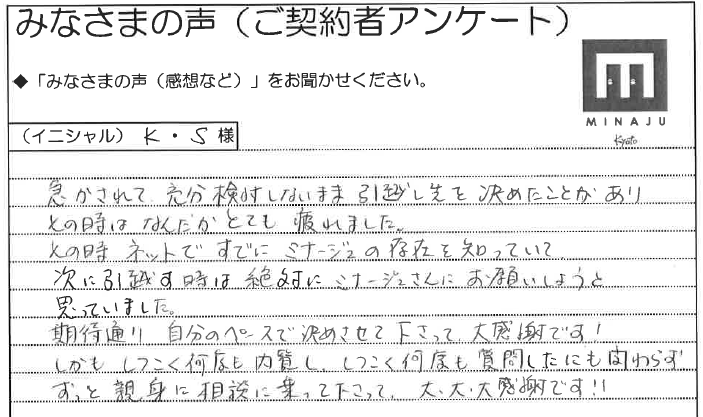 みなさまの声（ご契約者アンケート）
◆「みなさまの声（感想など）」をお聞かせください。
MINAJU
Kyoto
（イニシャル） K・S 様
急かされて 充分検討しないまま 引越し先を 決めたことがあり
その時は なんだかとても 疲れました。
その時 ネットで すでに ミナージュの存在を知っていて
次に引越す時は 絶対に ミナージュさんに お願いしようと
思っていました。
期待通り 自分のペースで決めさせて下さって 大感謝です！
しかも しつこく何度も内覧し、しつこく何度も質問したにも関わらず
ずっと 親身に相談に乗って下さって、大・大・大感謝です！！